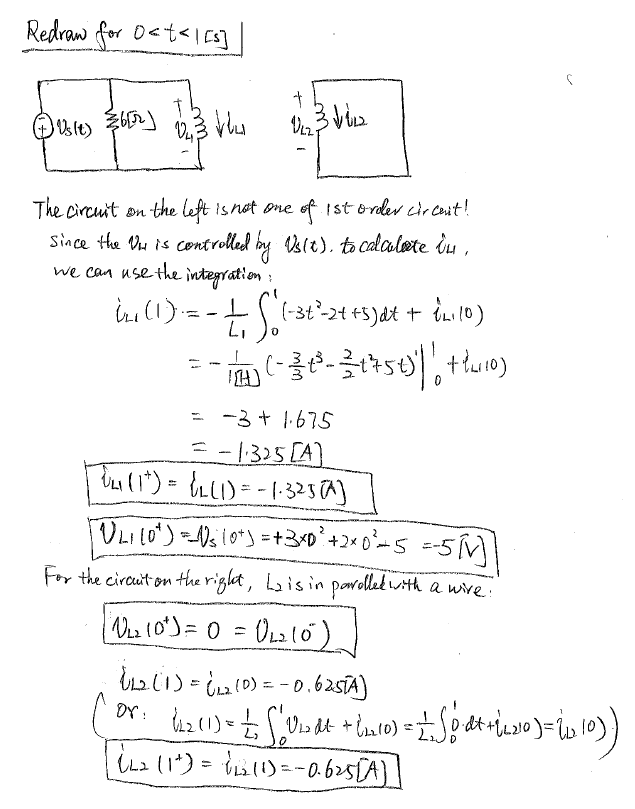 Redraw for 0<t<1[s]
Vs(t) 6[Ω] + VL1 - ↓iL1 + VL2 - ↓iL2
The circuit on the left is not one of 1st order circuit!
Since the VL1 is controlled by Vs(t). to calculate iL1,
we can use the integration:
iL1(1) = - 1/L1 ∫₀¹(-3t²-2t+5)dt + iL1(0)
= - 1/1[H] (-3/3 t³ - 2/2 t²+5t)|₀¹ + iL1(0)
= -3 + 1.675
= -1.325[A]
iL1(1⁺) = iL(1) = -1.325[A]
VL1(0⁺) = Vs(0⁺) = +3×0²+2×0²-5 = -5[V]
For the circuit on the right, L2 is in parolled with a wire:
VL2(0⁺) = 0 = VL2(0⁻)
iL2(1) = iL2(0) = -0.625[A]
(or: iL2(1) = 1/L2 ∫₀¹ VL2 dt + iL2(0) = 1/L2 ∫₀¹ 0·dt + iL2(0) = iL2(0))
iL2(1⁺) = iL2(1) = -0.625[A]